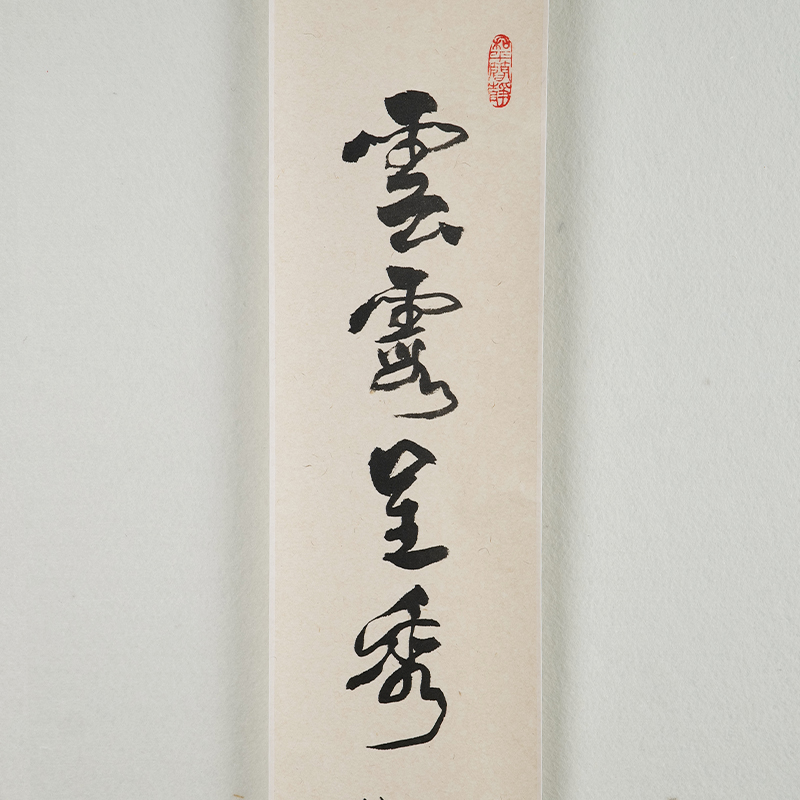 雲霞呈秀